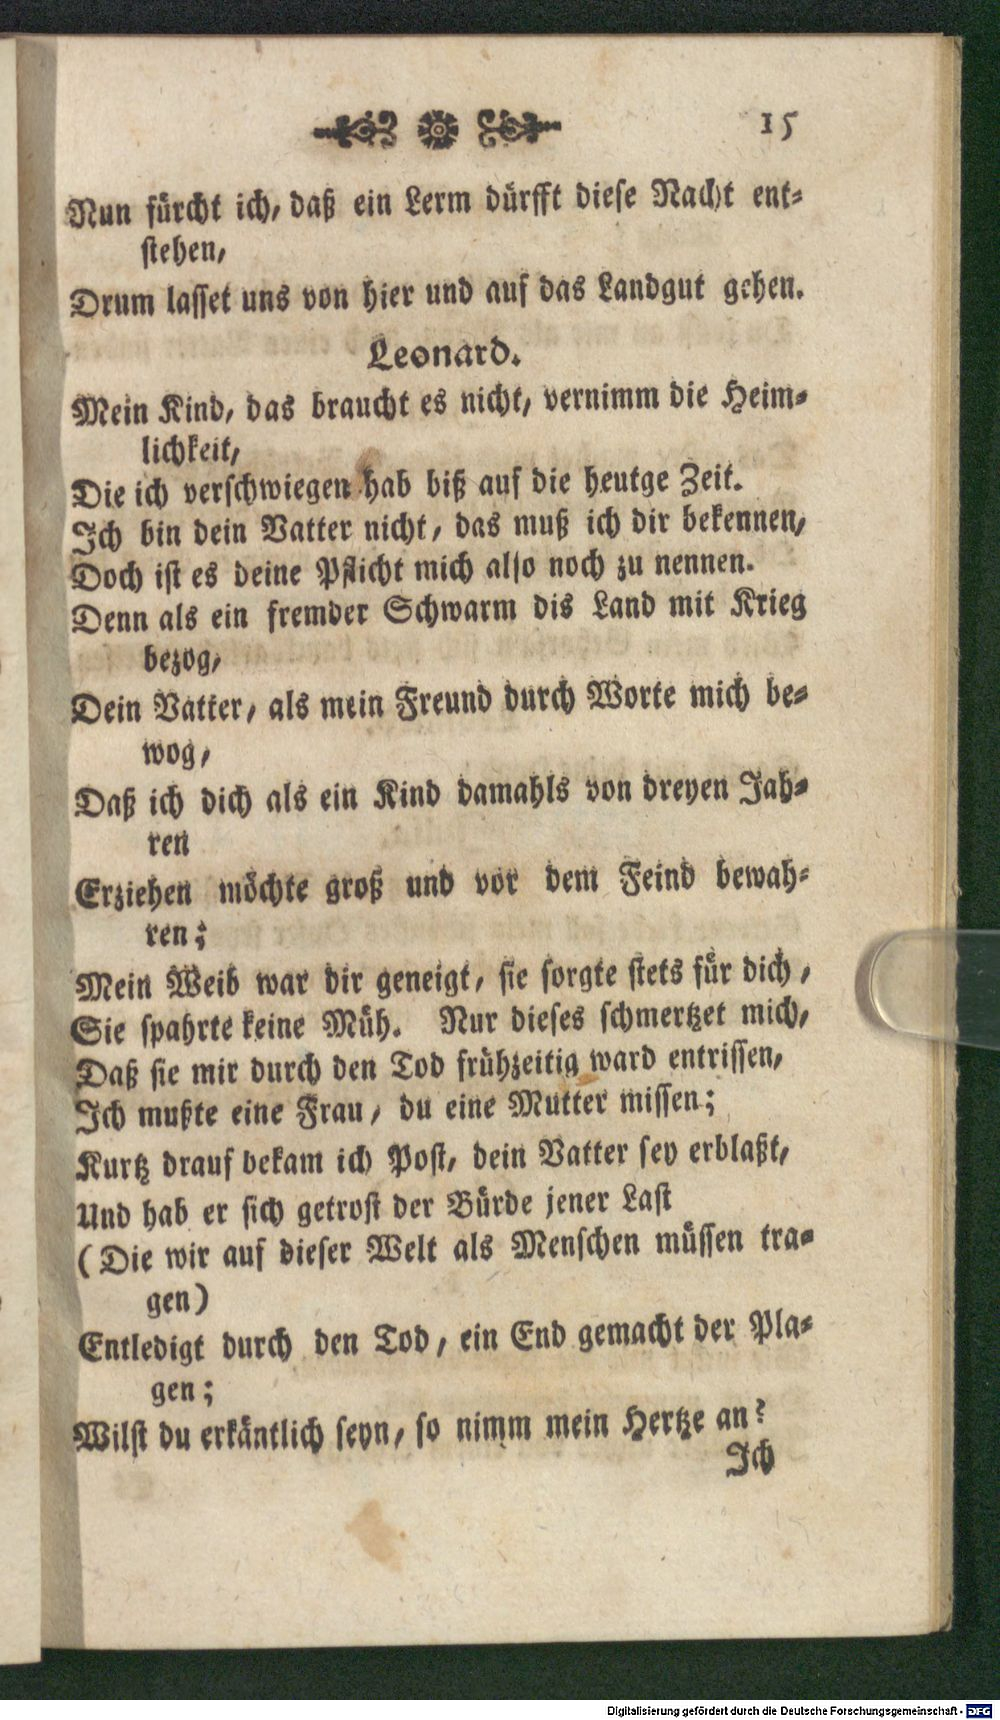 15
Nun fürcht ich, daß ein Lerm dürfft diese Nacht ent-
stehen,
Drum lasset uns von hier und auf das Landgut gehen.
Leonard.
Mein Kind, das braucht es nicht, vernimm die Heim-
lichkeit,
Die ich verschwiegen hab biß auf die heutge Zeit.
Ich bin dein Vatter nicht, das muß ich dir bekennen,
Doch ist es deine Pflicht mich also noch zu nennen.
Denn als ein fremder Schwarm dis Land mit Krieg
bezog,
Dein Vatter, als mein Freund durch Worte mich be-
wog,
Daß ich dich als ein Kind damahls von dreyen Jah-
ren
Erziehen möchte groß und vor dem Feind bewah-
ren;
Mein Weib war dir geneigt, sie sorgte stets für dich,
Sie spahrte keine Müh. Nur dieses schmertzet mich,
Daß sie mir durch den Tod frühzeitig ward entrissen,
Ich mußte eine Frau, du eine Mutter missen;
Kurtz drauf bekam ich Post, dein Vatter sey erblaßt,
Und hab er sich getrost der Bürde jener Last
(Die wir auf dieser Welt als Menschen müssen tra-
gen)
Entledigt durch den Tod, ein End gemacht der Pla-
gen;
Wilst du erkäntlich seyn, so nimm mein Hertze an?
Ich
Digitalisierung gefördert durch die Deutsche Forschungsgemeinschaft - DFG